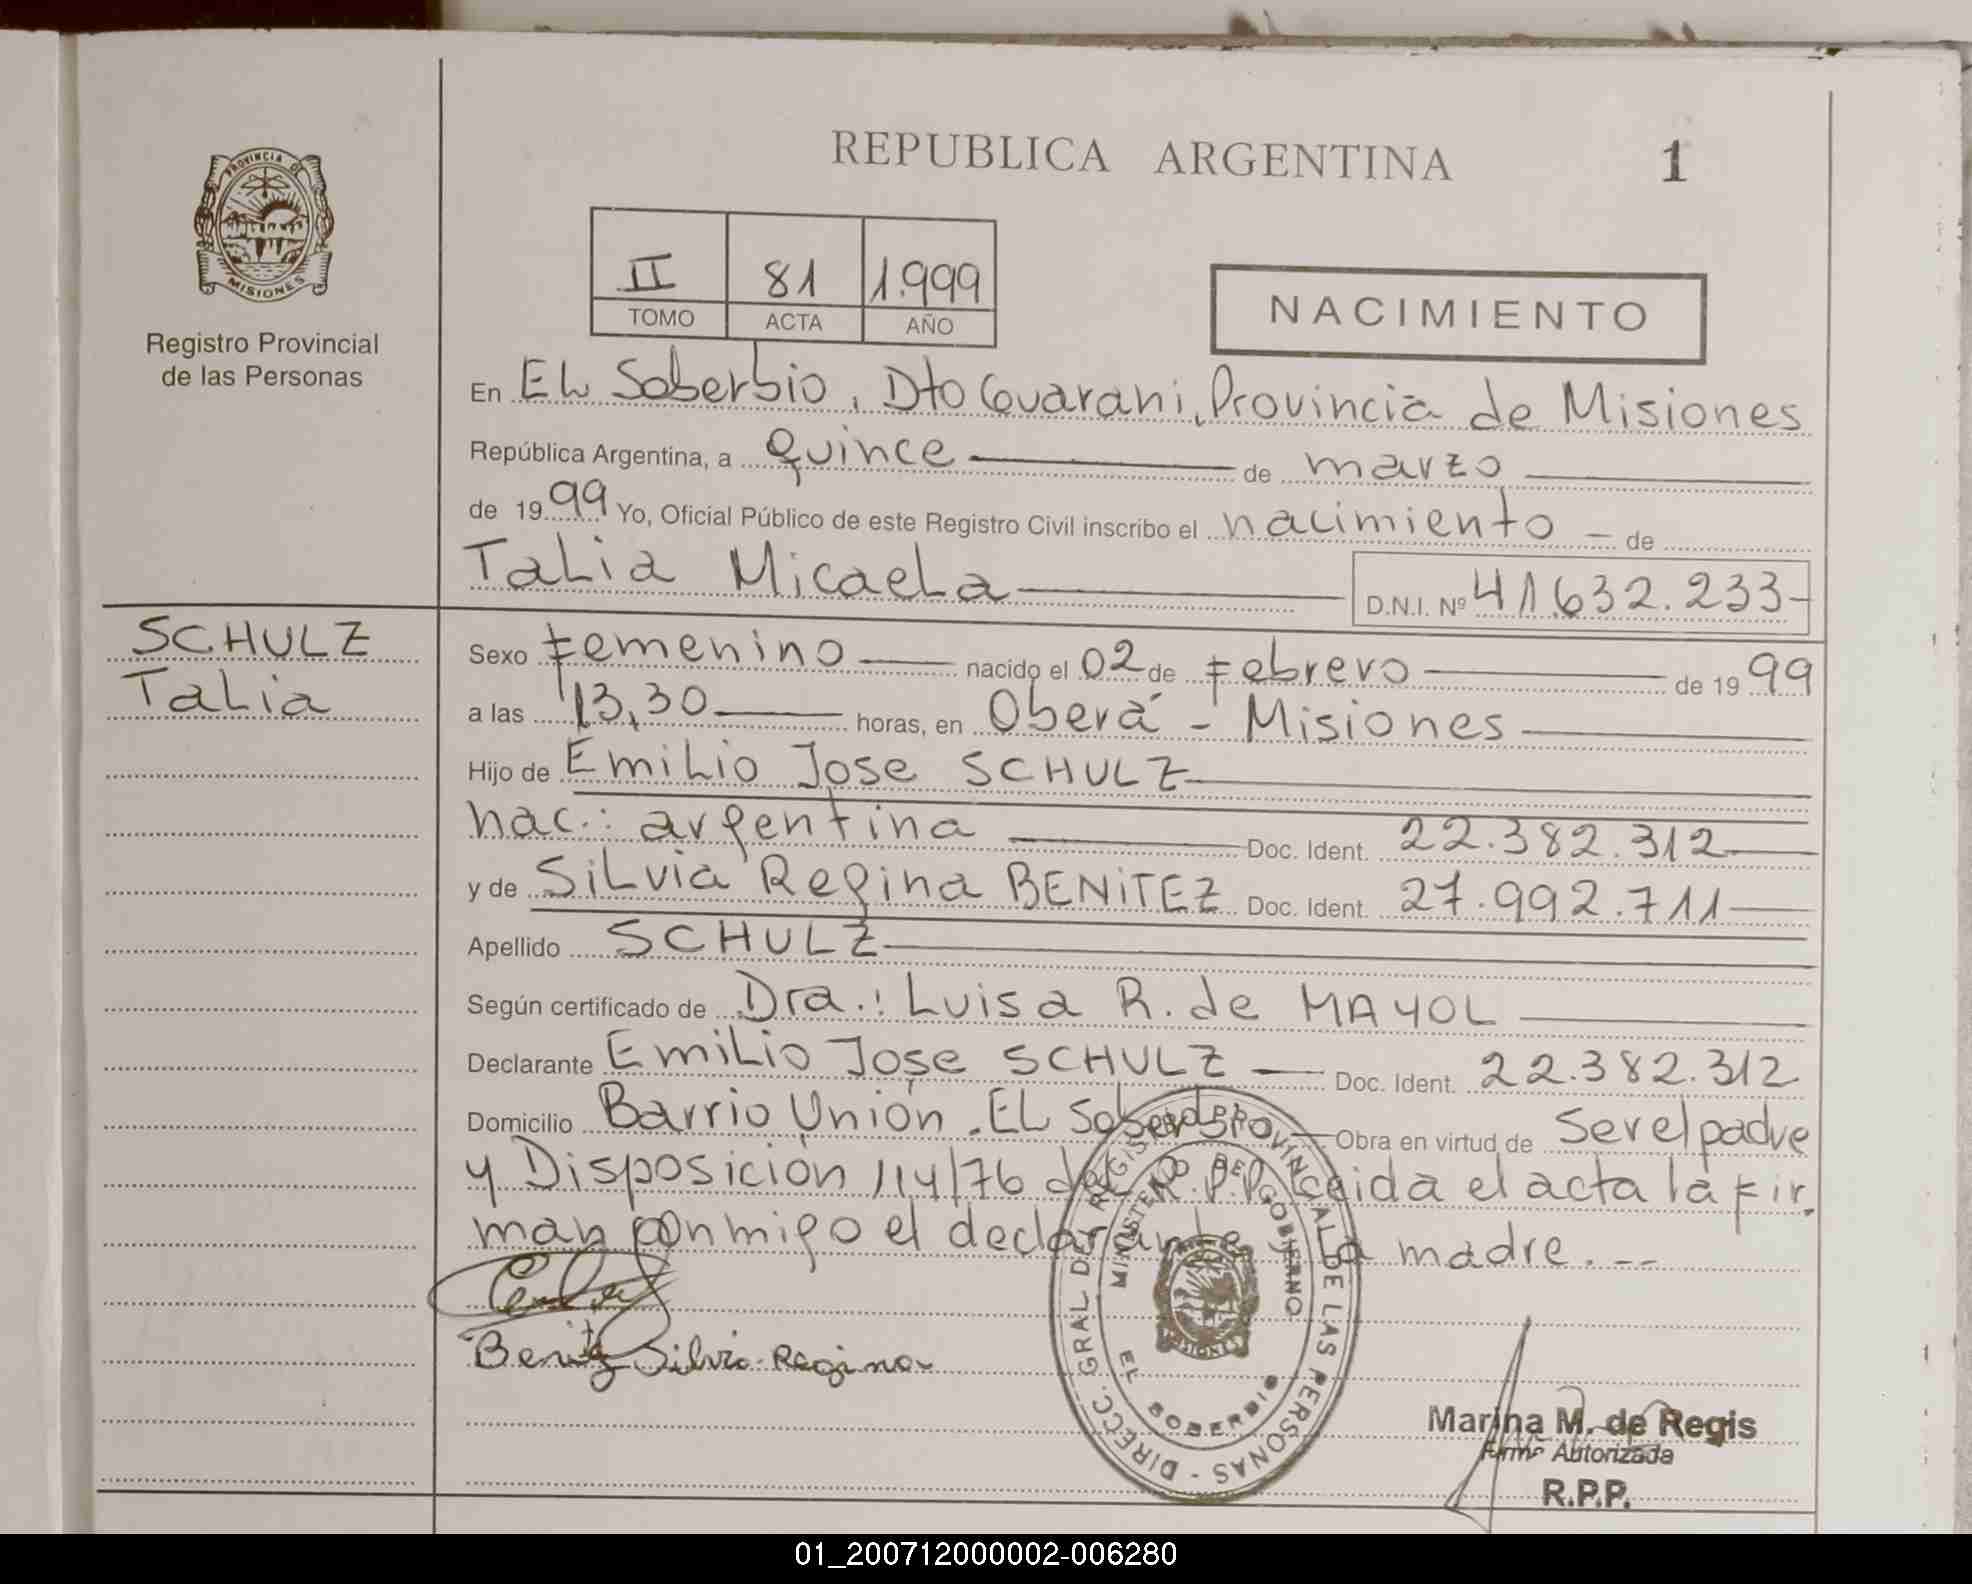 REPUBLICA ARGENTINA
1
PROVINCIA DE
MISIONES
Registro Provincial
de las Personas
II 81 1.999
TOMO ACTA AÑO
NACIMIENTO
En EL Soberbio, Dto Guarani, Provincia de Misiones
República Argentina, a quince de marzo
de 1999 Yo, Oficial Público de este Registro Civil inscribo el nacimiento - de
Talia Micaela D.N.I. Nº 41.632.233-
SCHULZ
Talia
Sexo femenino nacido el 02 de febrero de 1999
a las 13,30 horas, en Oberá - Misiones
Hijo de Emilio Jose SCHULZ
nac.: argentina Doc. Ident. 22.382.312
y de Silvia Regina BENITEZ Doc. Ident. 27.992.711
Apellido SCHULZ
Según certificado de Dra.: Luisa R. de MAYOL
Declarante Emilio Jose SCHULZ Doc. Ident. 22.382.312
Domicilio Barrio Unión. EL Soberbio Obra en virtud de ser el padre
y Disposición 114/76 del R.P.P. Leida el acta la fir
man conmigo el declarante y la madre. --
Benitez Silvia Regina
DIRECC. GRAL DE REGISTRO PROVINCIAL DE LAS PERSONAS -
MINISTERIO DE GOBIERNO
EL SOBERBIO
MISIONES
Marina M. de Regis
Firma Autorizada
R.P.P.
01_200712000002-006280